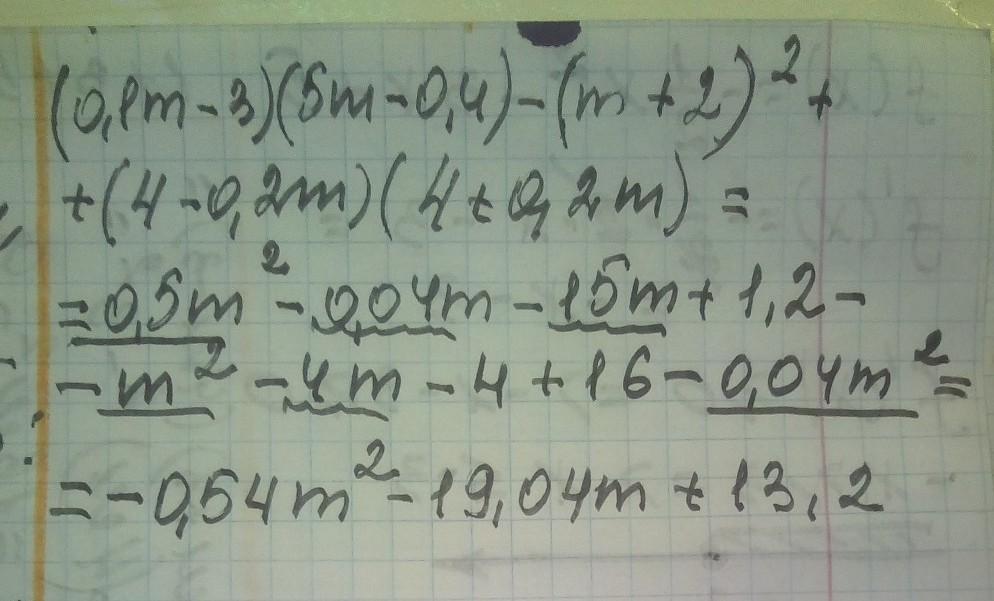 (0,1m-3)(5m-0,4)-(m+2)²+
+(4-0,2m)(4+0,2m)=
=0,5m²-0,04m-15m+1,2-
-m²-4m-4+16-0,04m²=
=-0,54m²-19,04m+13,2